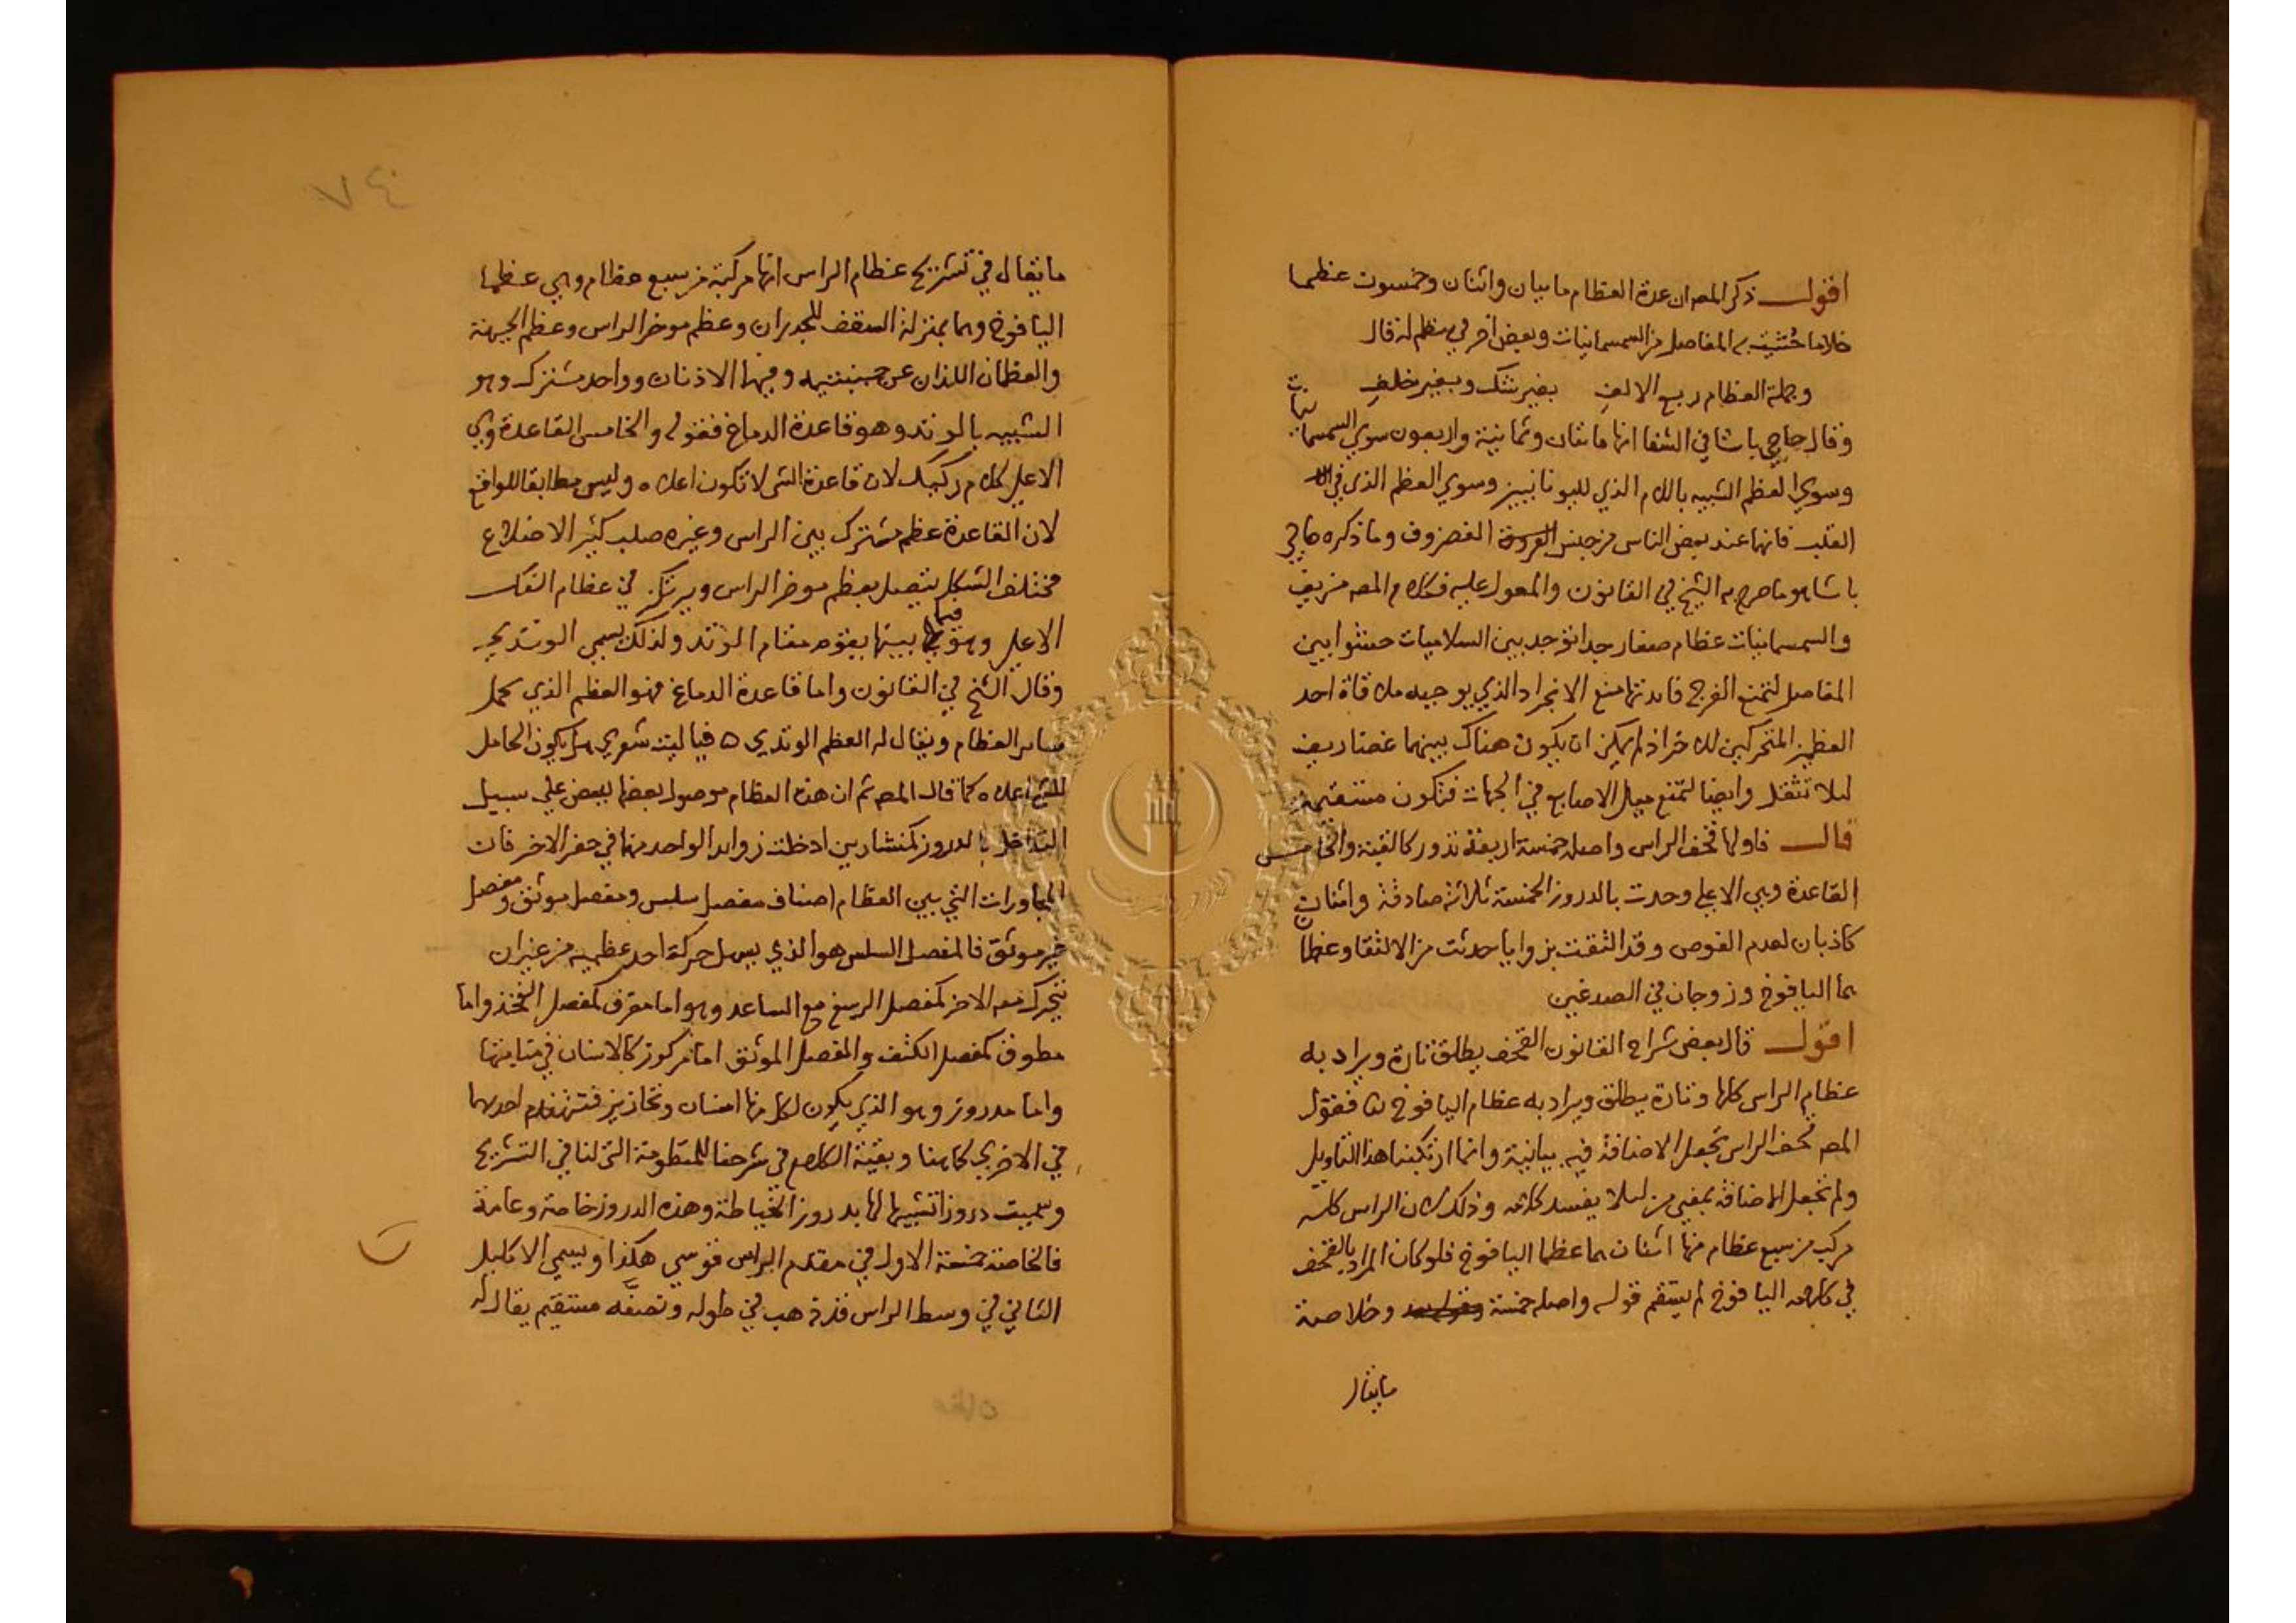 اقول ذكر المص ان عدة العظام مايتان واثنان وخمسون عظما
خلاما حشيت به المفاصل من السمسمانيات وبعض اخر في نظم له قال
وجملة العظام ربع الالف بغير شك وبغير خلف
وقال حاجي باشا في الشفا انها مايتان وثمانية واربعون سوي السمسمانيات
وسوي العظم الشبيه باللام الذي لليونانيين وسوي العظم الذي في
القلب فانها عند بعض الناس من جنس الغضروف وما ذكره حاجي
باشا هو ما صرح به الشيخ في القانون والمعول عليه فكلام المص مزيف
والسمسمانيات عظام صغار جدا توجد بين السلاميات حشوا بين
المفاصل لتمنع الفرج فايدتها منع الانجراد الذي يوجبه ملاقاة احد
العظمين المتحركين للاخر اذ لم يمكن ان يكون هناك بينهما غضاريف
ليلا تثقل وايضا لتمنع ميل الاصابع في الجهات فتكون مستقيمة
قال فاولها قحف الراس واصله خمسة اربعة تدور كالقبة والخامس
القاعدة وهي الاعلي وحدت بالدروز الخمسة ثلاثة صادقة واثنان
كاذبان لعدم الغوص وقد التقت بزوايا حدثت من الالتقا وعظما
هما اليافوخ وزوجان في الصدغين
اقول قال بعض شراح القانون القحف يطلق تارة ويراد به
عظام الراس كلها وتارة يطلق ويراد به عظام اليافوخ فقول
المص قحف الراس تجعل الاضافة فيه بيانية وانما ارتكبنا هذا التاويل
ولم نجعل الاضافة بمعني من ليلا يفسد كلامه وذلك لان الراس كله
مركب من سبع عظام منها اثنان هما عظما اليافوخ فلو كان المراد بالقحف
في كلامه اليافوخ لم يستقم قوله واصله خمسة وخلاصة
مايقال
٧٤
مايقال في تشريح عظام الراس انها مركبة من سبع عظام وهي عظما
اليافوخ وهما بمنزلة السقف للجدران وعظم موخر الراس وعظم الجبهة
والعظمان اللذان عن جنبتيه وفيهما الاذنان وواحد مشترك وهو
الشبيه بالوتد وهو قاعدة الدماغ فقوله والخامس القاعدة وهي
الاعلي كلام ركيك لان قاعدة الشي لا تكون اعلاه وليس مطابقا للواقع
لان القاعدة عظم مشترك بين الراس وغيره صلب كثير الاضلاع
مختلف الشكل يتصل بعظم موخر الراس ويرتكز في عظام الفك
الاعلي وهو فيما بينها يقوم مقام الوتد ولذلك يسمي الوتدي
وقال الشيخ في القانون واما قاعدة الدماغ فهو العظم الذي يحمل
ساير العظام ويقال له العظم الوتدي ه فيا ليت شعري هل يكون الحامل
للشي اعلاه كما قال المص ثم ان هذه العظام موصول بعضها ببعض علي سبيل
التداخل بالدروز كمنشارين ادخلت زوايد الواحد منها في حفر الاخر فان
المجاورات التي بين العظام اصناف مفصل سلس ومفصل موثق ومفصل
غير موثق فالمفصل السلس هو الذي يسهل حركة احد عظميه من غير ان
يتحرك معه الاخر كمفصل الرسغ مع الساعد وهو اما مغرق كمفصل الفخذ واما
مطوق كمفصل الكتف والمفصل الموثق اما مركوز كالاسنان في منابتها
واما مدروز وهو الذي يكون لكل منها اسنان وتحازيز فتنهندم احديهما
في الاخري كما هنا وبقية الكلام في شرحنا للمنظومة التي لنا في التشريح
وسميت دروزا تشبيها لها بدروز الخياطة وهذه الدروز خاصة وعامة
فالخاصة خمسة الاول في مقدم الراس قوسي هكذا ويسمي الاكليل
الثاني في وسط الراس قد ذهب في طوله ونصفه مستقيم يقال له